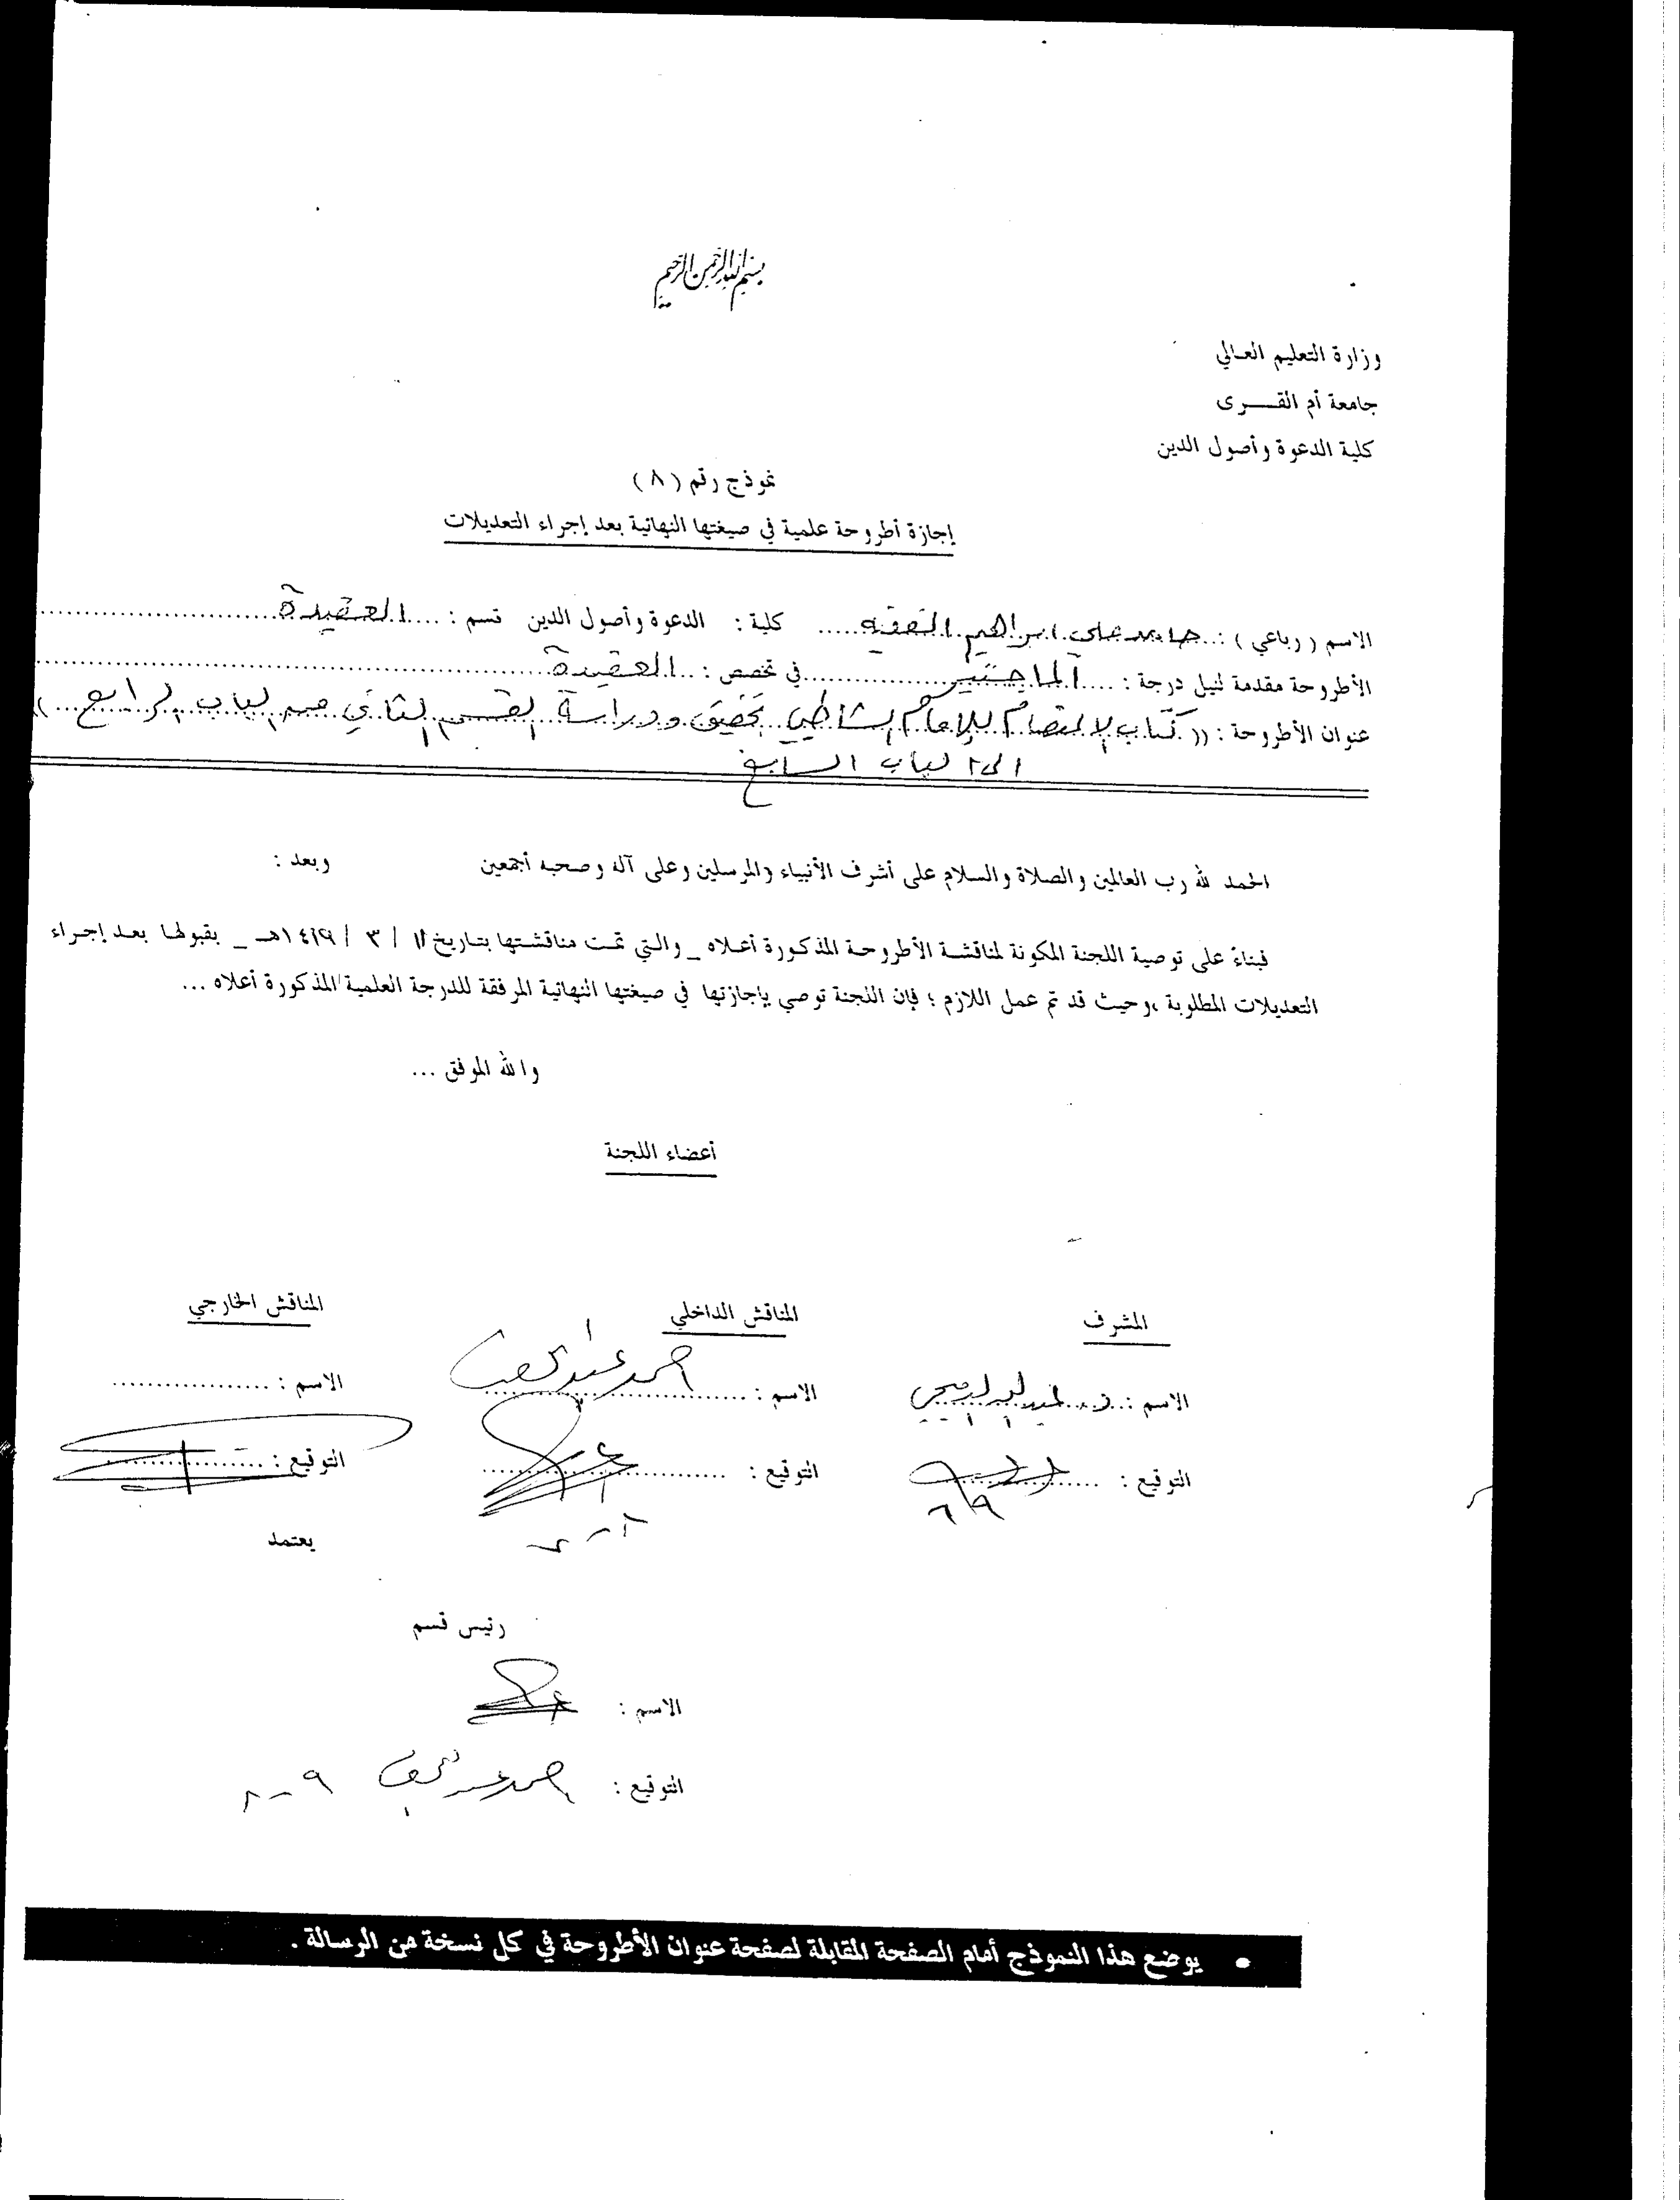 بسم الله الرحمن الرحيم
وزارة التعليم العالي
جامعة أم القــــرى
كلية الدعوة وأصول الدين
نموذج رقم ( ٨ )
إجازة أطروحة علمية في صيغتها النهائية بعد إجراء التعديلات
الاسم ( رباعي ) : حامد علي ابراهيم الفقيه كلية : الدعوة وأصول الدين قسم : العقيدة
الأطروحة مقدمة لنيل درجة : الماجستير في تخصص : العقيدة
عنوان الأطروحة : (( كتاب الاعتصام للإمام الشاطبي تحقيق ودراسة القسم الثاني من الباب الرابع ))
الى الباب السابع
الحمد لله رب العالمين والصلاة والسلام على أشرف الأنبياء والمرسلين وعلى آله وصحبه أجمعين وبعد :
فبناءً على توصية اللجنة المكونة لمناقشة الأطروحة المذكورة أعلاه _ والتي تمت مناقشتها بتاريخ ١١ / ٣ / ١٤١٩هـ _ بقبولها بعد إجراء
التعديلات المطلوبة ، وحيث قد تم عمل اللازم ؛ فإن اللجنة توصي بإجازتها في صيغتها النهائية المرفقة للدرجة العلمية المذكورة أعلاه ...
والله الموفق ...
أعضاء اللجنة
المشرف المناقش الداخلي المناقش الخارجي
الاسم : الاسم : احمد عبد الاسم :
التوقيع : التوقيع : التوقيع :
يعتمد
رئيس قسم
الاسم :
التوقيع :
• يوضع هذا النموذج أمام الصفحة المقابلة لصفحة عنوان الأطروحة في كل نسخة من الرسالة .